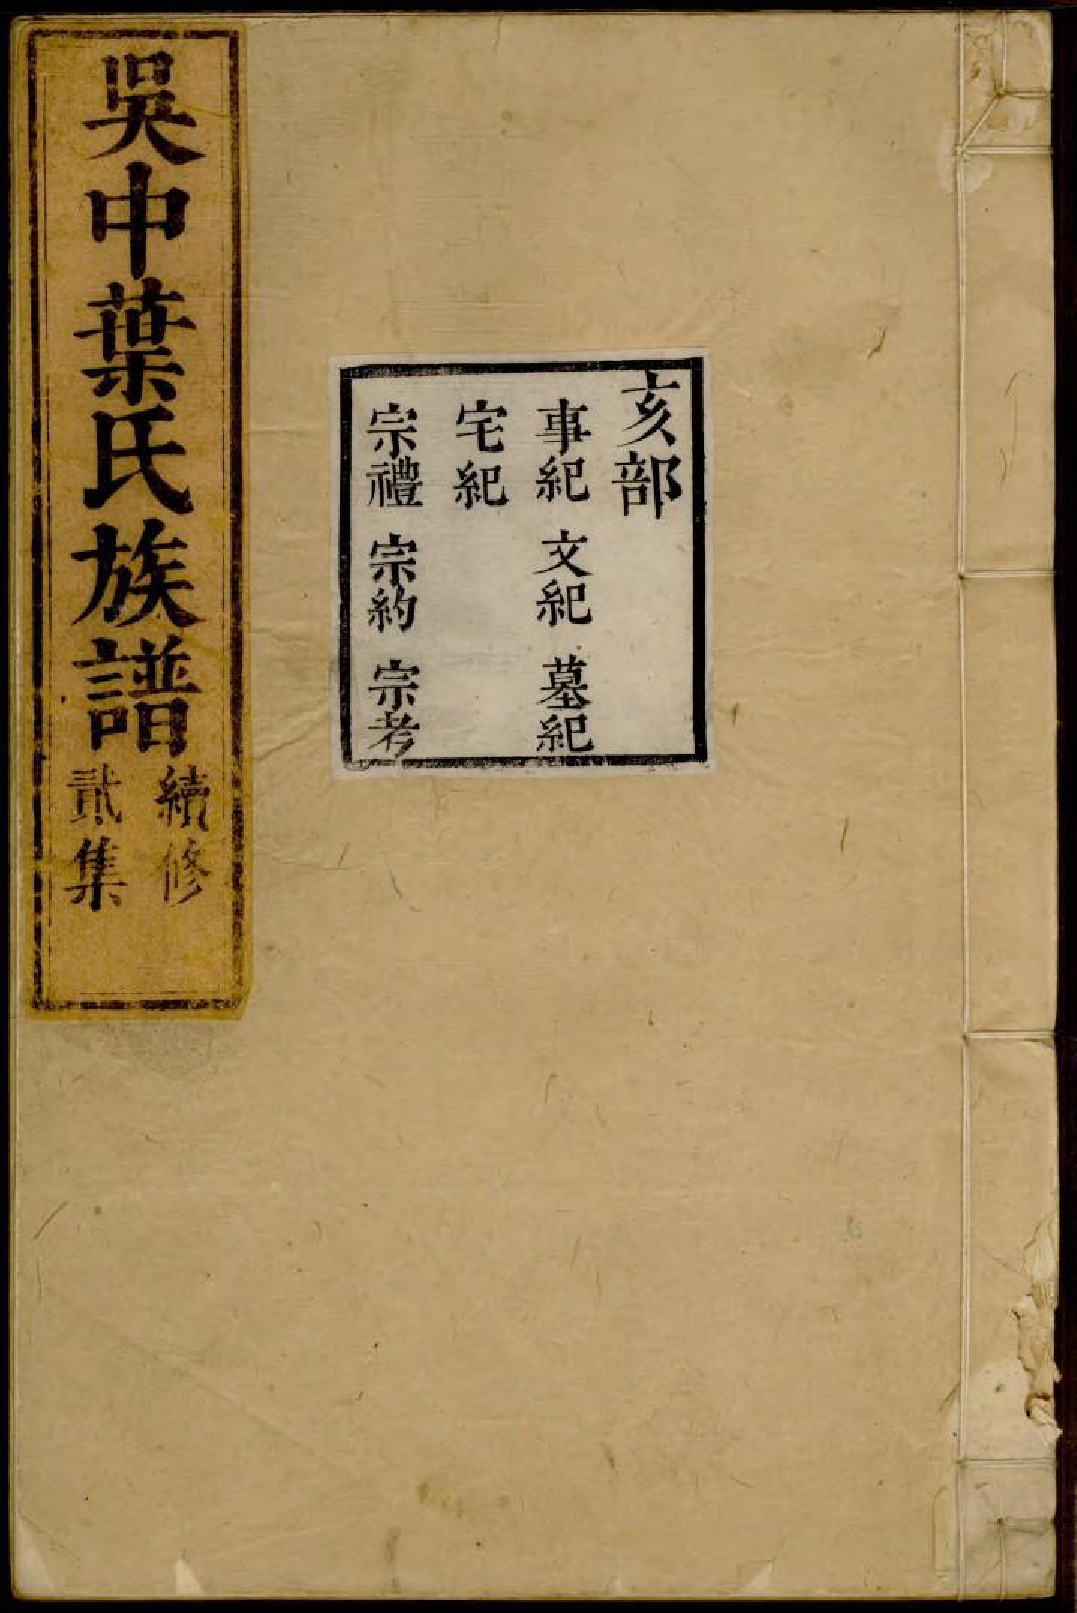 亥部
事紀 文紀 墓紀
宅紀
宗禮 宗約 宗考
吳中葉氏族譜
續修
貳集